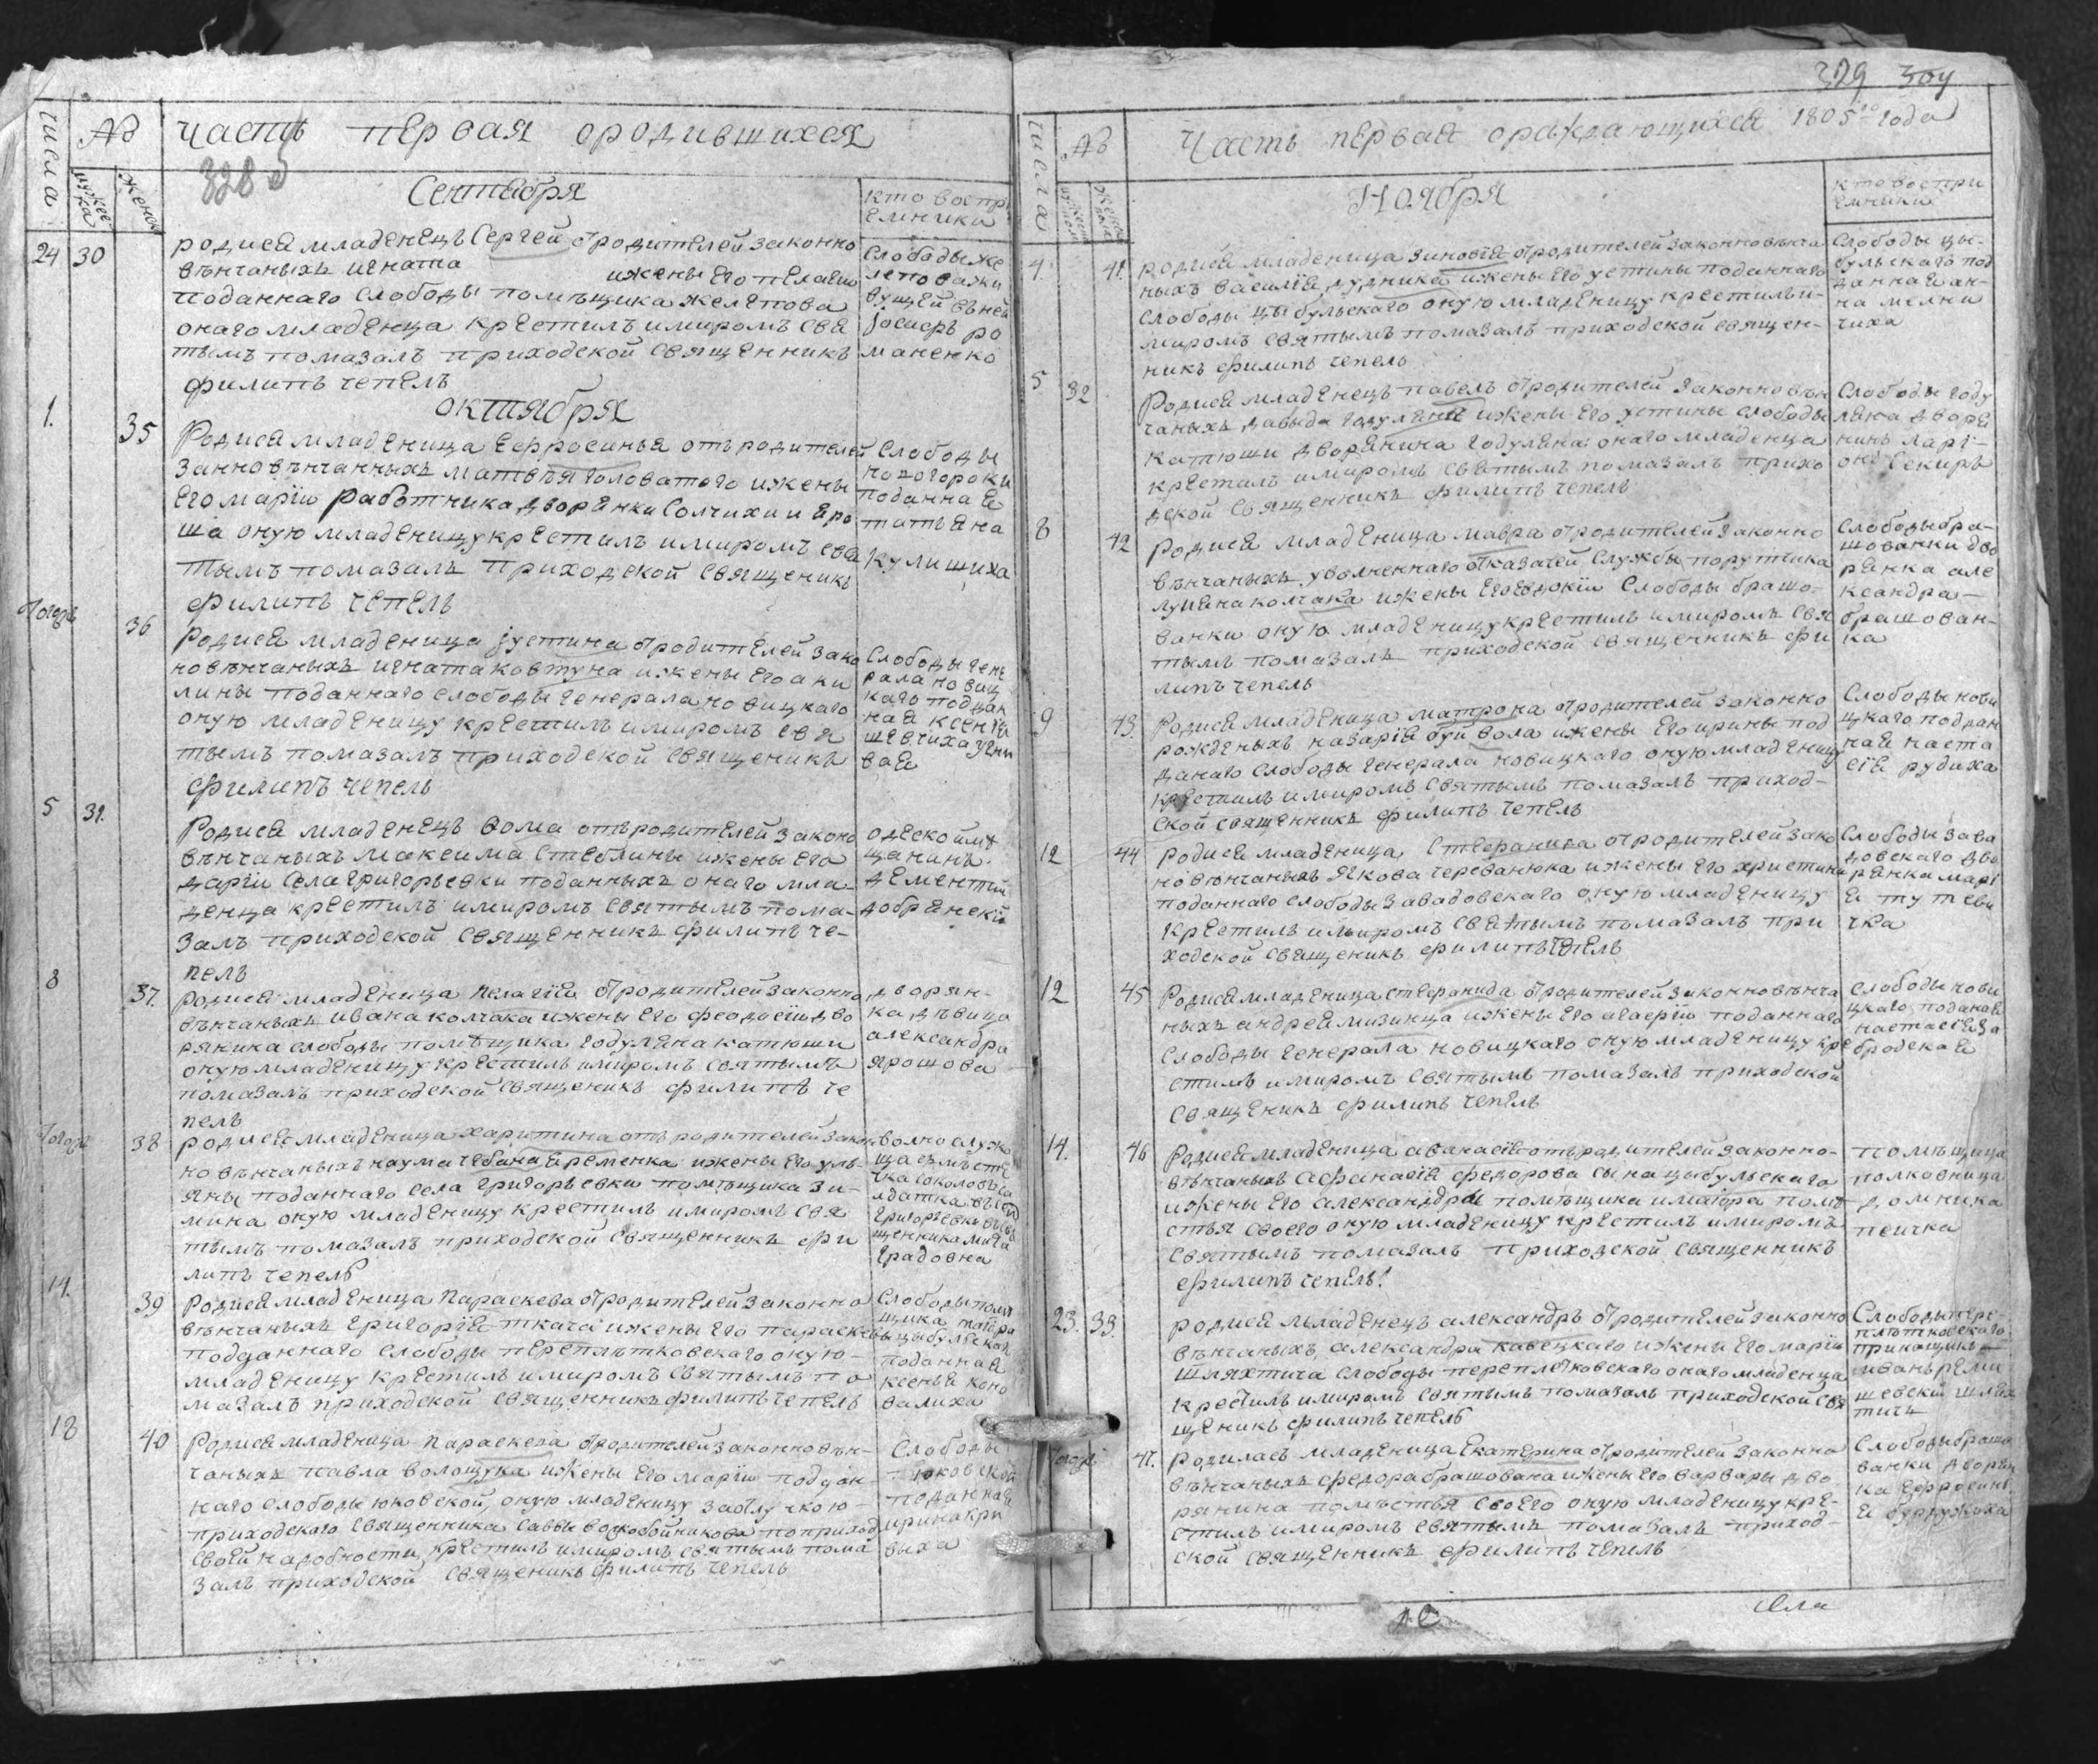 числа
№
часть первая ородившихся
328
мужеска
женска
Сентября
кто воспр
емники
24 30
родися младенецъ Сергей отродителей законно
вѣнчаныхъ игната ижены его пелагии
подданнаго слободы помѣщика желепова
онаго младенца крестилъ имиромъ свя
тымъ помазалъ приходской священникъ
филипъ чепель
Слободы же
лепова жи
вущей въней
Іосифъ ро
маненко
октября
1.
35
Родися младеница Еефросинья отъ родителей
занновѣнчанныхъ матвѣя головатого ижены
его маріи работника дворенки Солчихи и еро
ша оную младеницу крестилъ имиромъ свя
тымъ помазалъ приходской священикъ
филипъ чепель
Слободы
новогороки
поданная
татьяна
кулишиха
Тогожъ
36
Родися младеница іустина отродителей зако
новѣнчаныхъ игната ковтуна ижены его аки
лины поданнаго слободы генерала новицкаго
оную младеницу крестилъ имиромъ свя
тымъ помазалъ приходской священикъ
филипъ чепель
Слободы гене
рала новиц
каго поддан
ная ксенія
шевчиха
вая
5 31.
Родися младенецъ Ѳома отъродителей законо
вѣнчаныхъ максима стеблины ижены его
даріи села григорьевки поданныхъ онаго мла-
денца крестилъ имиромъ святымъ пома-
залъ приходской священникъ филипъ че-
пель
одеской мѣ
щанинъ
дементій
добренскій
8
37.
Родися младеница пелагія отродителей законно
вѣнчаныхъ ивана колчака ижены его феодосіи дво
ряника слободы помѣщика годулена катюши
оную младеницу крестилъ имиромъ святымъ
помазалъ приходской священикъ филипъ че
пель
дворян-
ка дѣвица
александра
ярошова
Тогожъ
38
родися младеница харитина отъ родителей закон
новѣнчаныхъ наума чебана еременка ижены его уль-
яны поданнаго села григорьевки помѣщика зи-
мина оную младеницу крестилъ имиромъ свя
тымъ помазалъ приходской священникъ фи
липъ чепель
волнослужа
чка соколовъ
григорьевки
щенника
градовна
14.
39
Родися младеница параскева отродителей законно
вѣнчаныхъ григорія ткача ижены его параскевы
подданнаго слободы переплѣтковскаго оную-
младеницу крестилъ имиромъ святымъ по
мазалъ приходской священникъ филипъ чепель
Слободы помѣ
щика маіора
цыбулская
поданная
ксенья коно
валиха
18
40
Родися младеница параскева отродителей законновѣн-
чаныхъ павла волощука ижены его маріи поддан-
наго слободы юковской, оную младеницу заотлучкою-
приходскаго священника саввы воскобойникова поприход
своей надобности, крестилъ имиромъ святымъ пома
залъ приходской священикъ филипъ чепель
Слободы
юковской
поданная
ирина кри
выха
329 304
числа
№
Часть первая ораждающихся 1805го года
мужеска
женска
Ноября
кто воспри
емники
4.
41.
родися младеница зиновія отродителей законновѣнча
ныхъ василія дудника ижены его устины поданнаго
слободы цыбульскаго оную младеницу крестилъ и-
миромъ святымъ помазалъ приходской священ-
никъ филипъ чепель
Слободы цы-
бульскаго под
данная ан-
на мелни
чиха
5 32
Родися младенецъ павелъ отродителей законновѣн
чаныхъ давыда годуляна ижены его устины слободы
катюши дворянина годуляна: онаго младенца
крестилъ имиромъ святымъ помазалъ прихо
дской священникъ филипъ чепель
Слободы году
ляна дворя
нинъ ларі-
онъ секиръ
8
42
Родися младеница мавра отродителей законно
вѣнчаныхъ уволненнаго отказачей службы порутчика
лупяна колчака ижены его евдокіи слободы брашо-
ванки оную младеницу крестилъ имиромъ свя
тымъ помазалъ приходской священникъ фи
липъ чепель
слободы бра-
шованки дво
рянка але
ксандра-
брашован-
ка
9
43.
Родися младеница матрона отродителей законно
рожденыхъ назарія буйвола ижены его ирины под
данаго слободы генерала новицкаго оную младеницу
крестилъ имиромъ святымъ помазалъ приход-
ской священникъ филипъ чепель
Слободы нови
цкаго поддан
ная наста
сія рудиха
12
44
Родися младеница Стефанида отродителей зако
новѣнчаныхъ якова череванюка ижены его христины
поданнаго слободы завадовскаго оную младеницу
крестилъ имиромъ святымъ помазалъ при
ходской священикъ филипъ чепель
Слободы зава
довскаго дво
рянка марі
я тутеви
чка
12
45
Родися младеница стефанида отродителей законновѣнча
ныхъ андрея мизинца ижены его агафіи поданнаго
слободы генерала новицкаго оную младеницу кре
стилъ имиромъ святымъ помазалъ приходской
священикъ филипъ чепель
слободы нови
цкаго поданая
настасія за
бродская
14.
46
Родися младеница аѳанасія отъродителей законно-
вѣнчаныхъ афанасія федорова сына цыбулскаго
ижены его александры помѣщика имаіора помѣ
стья своего оную младеницу крестилъ имиромъ
святымъ помазалъ приходской священникъ
филипъ чепель!
помѣщица
полковница
домника
пеичка
23. 33.
родися младенецъ александръ отродителей законно
вѣнчаныхъ александра кавецкаго ижены его маріи
шляхтича слободы переплетковскаго онаго младенца
крестилъ имиромъ святымъ помазалъ приходской свя
щеникъ филипъ чепель
Слободы пере-
плѣтковскаго
прикащикъ
иванъ реми
шевскій шлях
тичъ
Тогожъ
47.
родилась младеница Екатерина отродителей законно
вѣнчаныхъ федора брашована ижены его варвары дво
рянина помѣстья своего оную младеницу кре-
стилъ имиромъ святымъ помазалъ приход-
ской священникъ филипъ чепель
Слободы брашо
ванки дворян
ка еефросинь
я бурдужиха